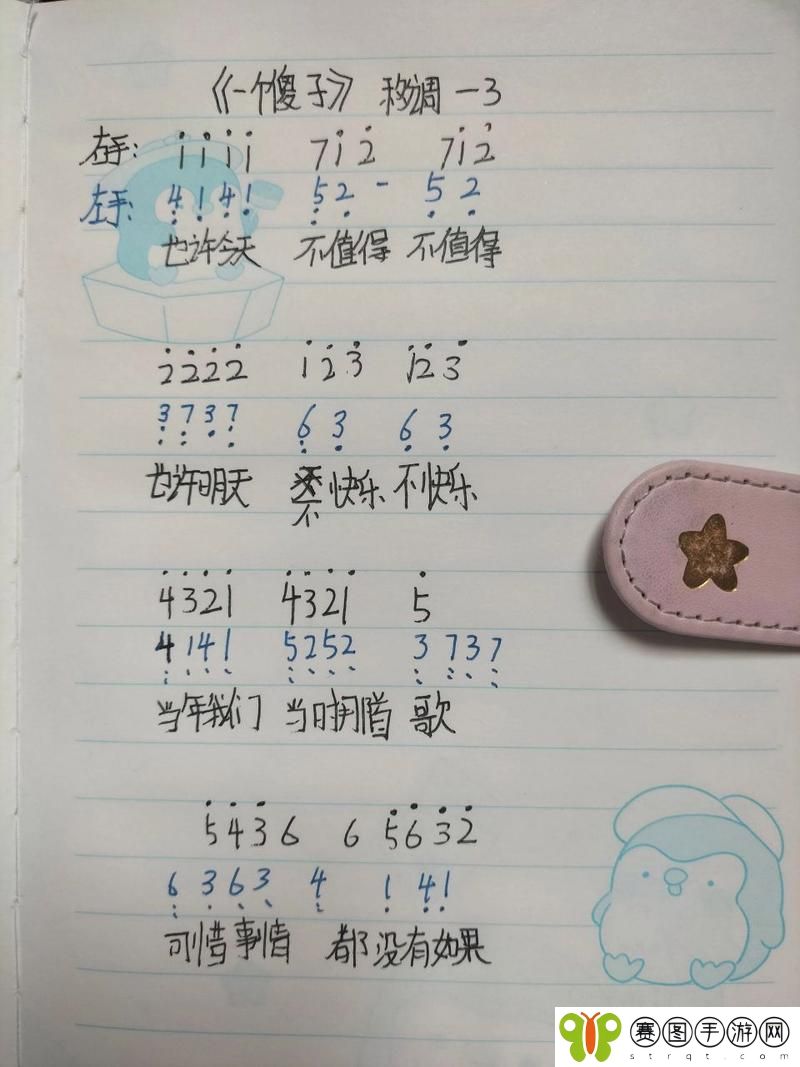 《一个傻子》 移调 -3
右手: i i i i 7 i 2̇ 7 i 2̇
左手: 4 1 4 1 5 2 - 5 2
也许今天 不值得 不值得
2̇ 2̇ 2̇ 2̇ i 2̇ 3̇ i 2̇ 3̇
3 7 3 7 6 3 6 3
也许明天 不快乐 不快乐
4̇ 3̇ 2̇ i 4̇ 3̇ 2̇ i 5̇
4 1 4 1 5 2 5 2 3 7 3 7
当年我们 当时拥着 歌
5̇ 4̇ 3̇ 6 6 5̇ 6̇ 3̇ 2̇
6 3 6 3 4 1 4 1
可惜事情 都没有如果
赛图手游网
strqt.com